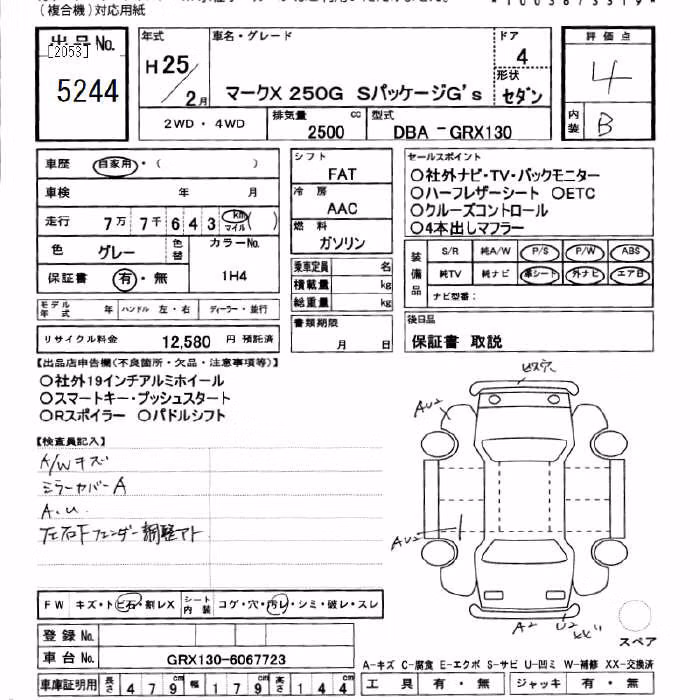 (複合機)対応用紙
出品No.
[2053]
5244
年式
H25/2月
車名・グレード
マークX 250G SパッケージG's
ドア
4
形状
セダン
2WD・4WD
排気量
2500 cc
型式
DBA-GRX130
評価点
4
内装
B
車歴 自家用・( )
車検 年 月
走行 7万 7千 6 4 3 km マイル ( )
色 グレー 色替 カラーNo. 1H4
保証書 有・無
モデル年式 年 ハンドル 左・右 ディーラー・並行
リサイクル料金 12,580 円 預託済
シフト
FAT
冷房
AAC
燃料
ガソリン
乗車定員 名
積載量 kg
総重量 kg
書類期限
月 日
セールスポイント
○社外ナビ・TV・バックモニター
○ハーフレザーシート ○ETC
○クルーズコントロール
○4本出しマフラー
装備品
S/R 純A/W P/S P/W ABS
純TV 純ナビ 革シート 外ナビ エア日
ナビ型番:
後日品
保証書 取説
【出品店申告欄(不良箇所・欠品・注意事項等)】
○社外19インチアルミホイール
○スマートキー・プッシュスタート
○Rスポイラー ○パドルシフト
【検査員記入】
A/Wキズ
ミラーカバーA
A.U.
左右Fフェンダー調整アト
FW キズ・トビ石・割レX シート内装 コゲ・穴・汚レ・シミ・破レ・スレ
登録No.
車台No. GRX130-6067723
車庫証明用 長さ 479cm 幅 179cm 高さ 144cm
ビス穴
AU2
AU2
A2
U2
XX
スペア
A-キズ C-腐食 E-エクボ S-サビ U-凹ミ W-補修 XX-交換済
工具 有・無 ジャッキ 有・無